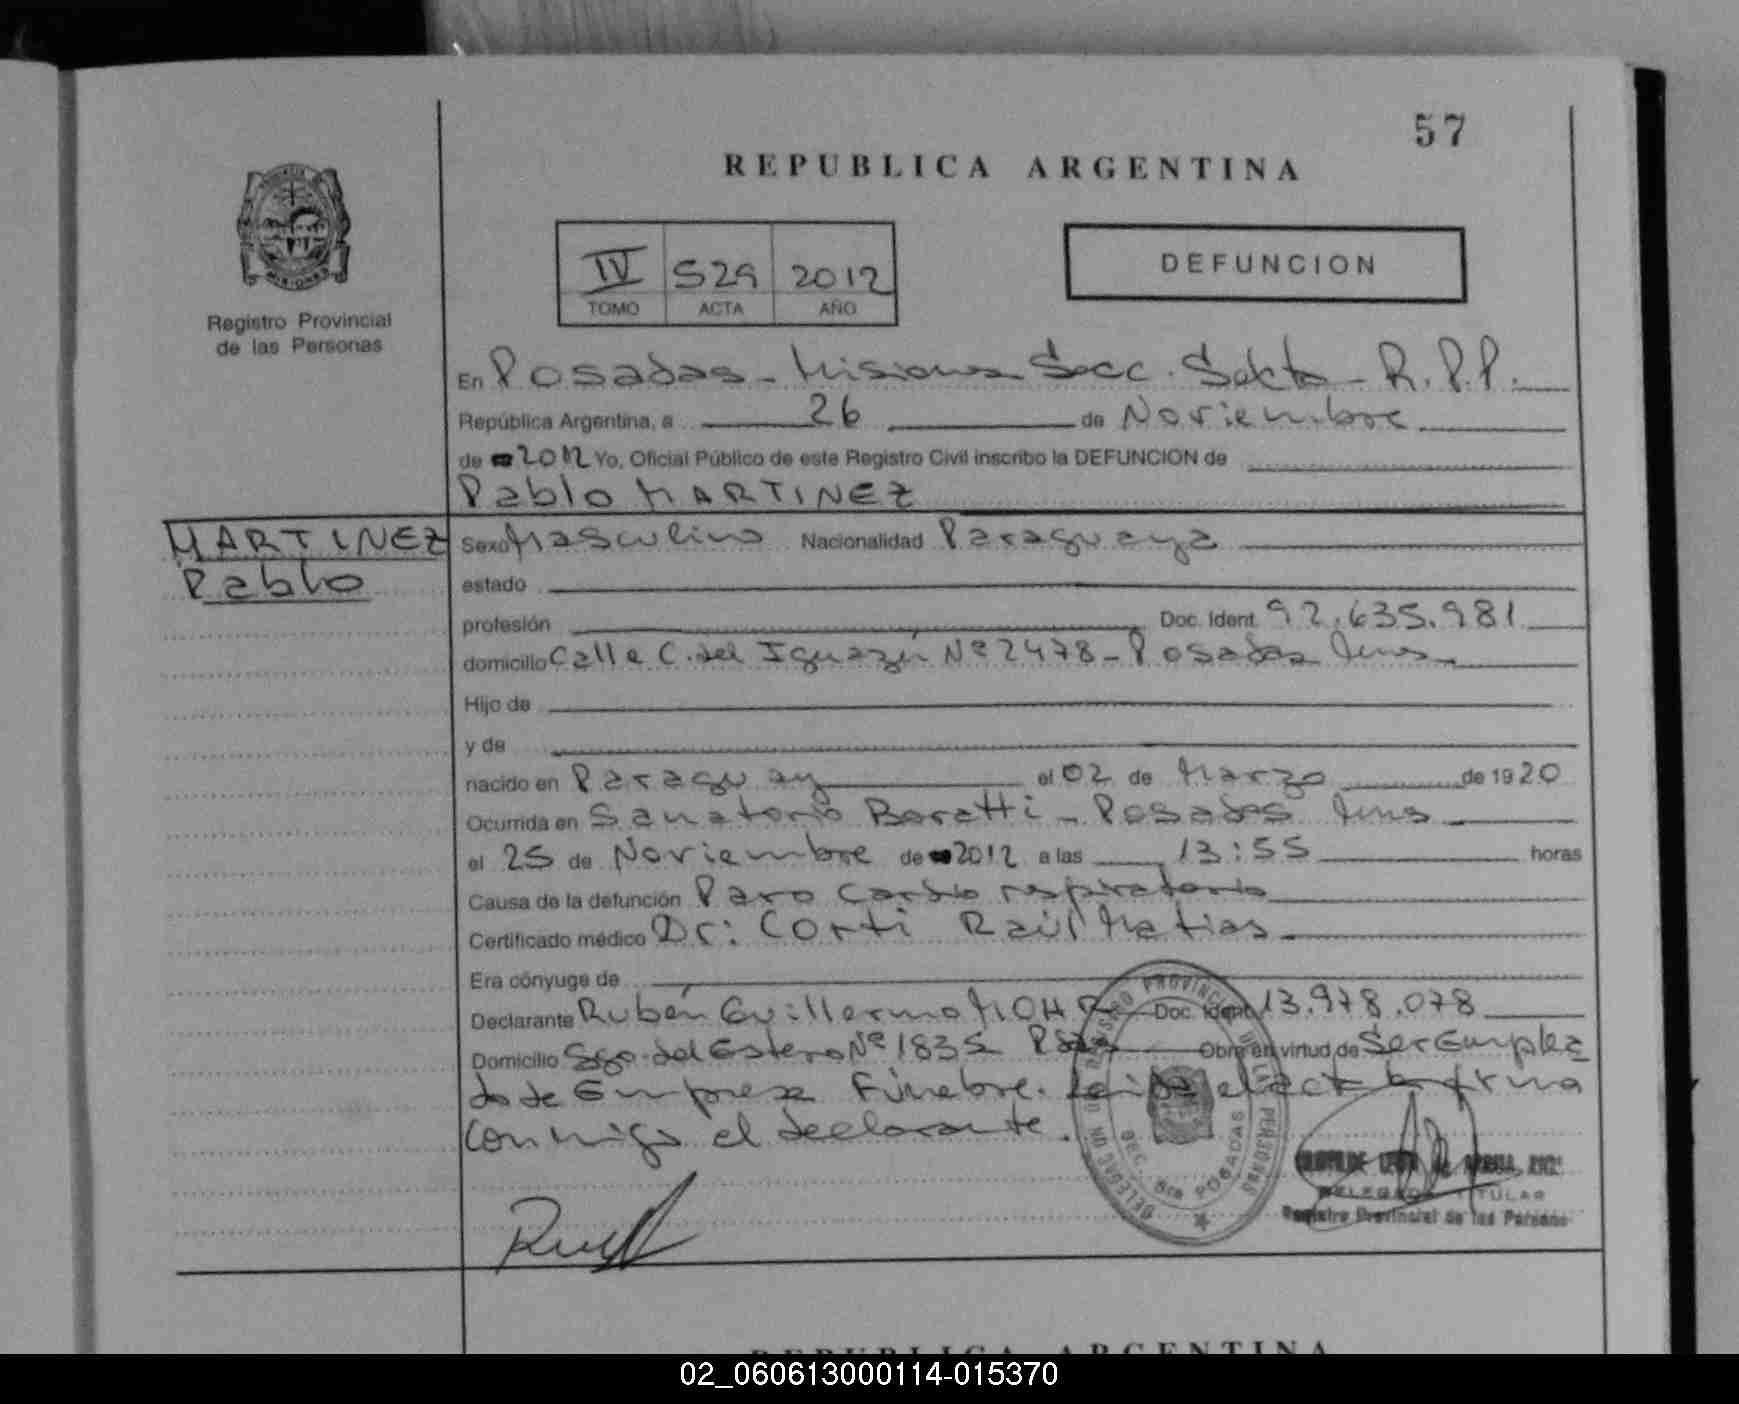 57
REPUBLICA ARGENTINA
IV 529 2012
TOMO ACTA AÑO
DEFUNCION
Registro Provincial
de las Personas
En Posadas - Misiones Secc. Sexta - R.P.P.
República Argentina, a 26 de Noviembre
de 2012 Yo, Oficial Público de este Registro Civil inscribo la DEFUNCION de
Pablo MARTINEZ
MARTINEZ
Pablo
Sexo Masculino Nacionalidad Paraguaya
estado
profesión Doc. Ident. 92.635.981
domicilio Calle C. del Iguazú Nº 2478 - Posadas Mnes
Hijo de
y de
nacido en Paraguay el 02 de Marzo de 1920
Ocurrida en Sanatorio Boratti - Posadas Mnes
el 25 de Noviembre de 2012 a las 13:55 horas
Causa de la defunción Paro Cardio respiratorio
Certificado médico Dr: Corti Raúl Matias
Era cónyuge de
Declarante Rubén Guillermo MOHR Doc. Ident. 13.978.078
Domicilio Sgo. del Estero Nº 1835 Pdas Obra en virtud de Ser Emplea
do de Empresa Fúnebre. Leida el acta la firma
conmigo el declarante.
REGISTRO PROVINCIAL DE LAS PERSONAS
DELEGACION
SEC. 6ta POSADAS
DELEGADA TITULAR
Registro Provincial de las Personas
REPUBLICA ARGENTINA
02_060613000114-015370